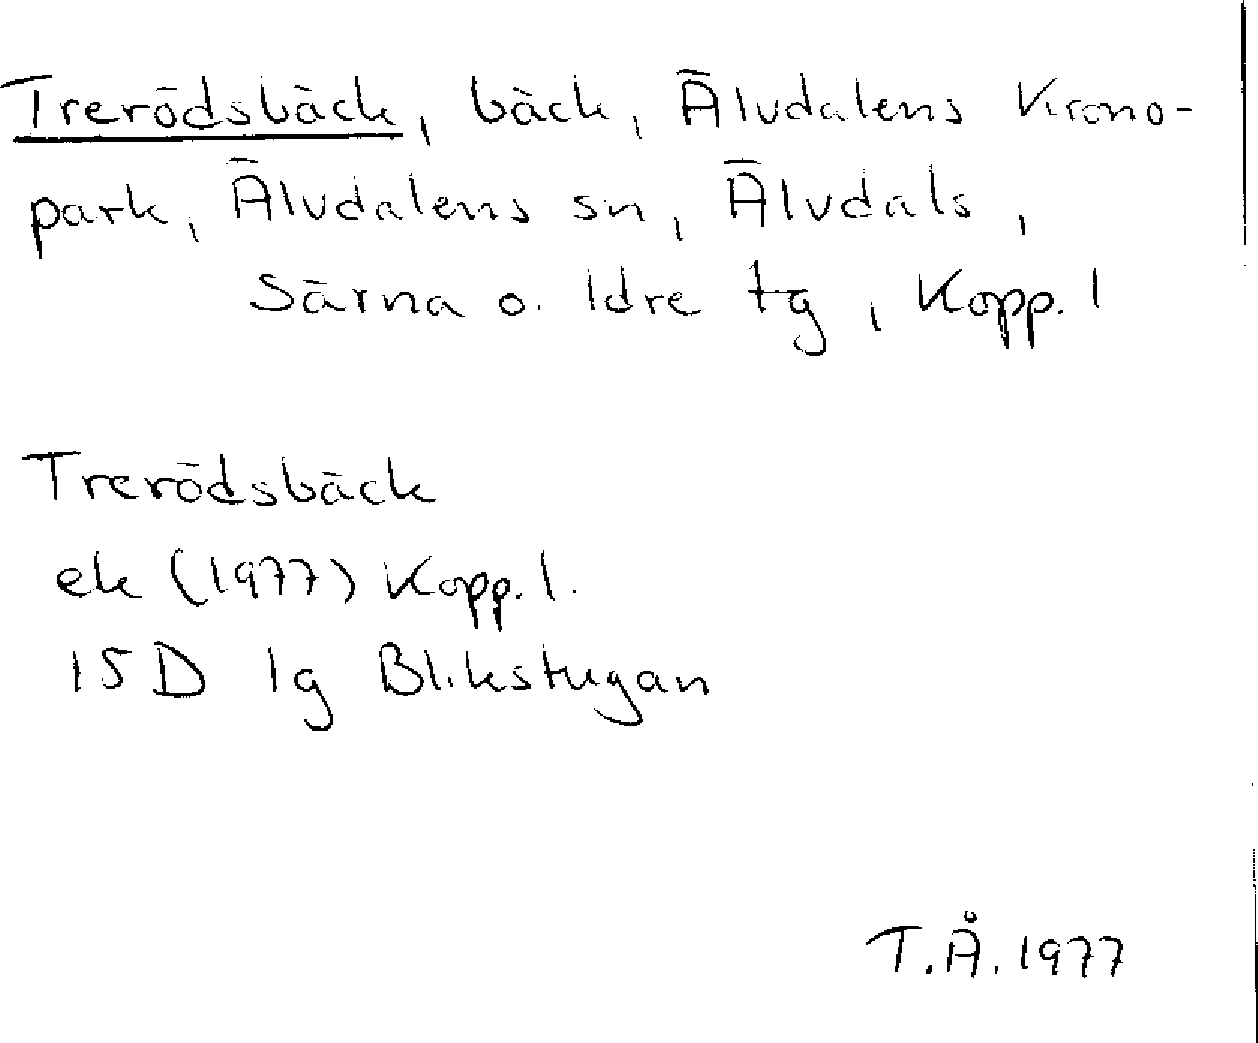 Trerödsbäck, bäck, Älvdalens Krono-
park, Älvdalens sn, Älvdals,
Särna o. Idre tg, Kopp. l
Trerödsbäck
ek (1977) Kopp. l.
15D 1g Blikstugan
T.Å. 1977